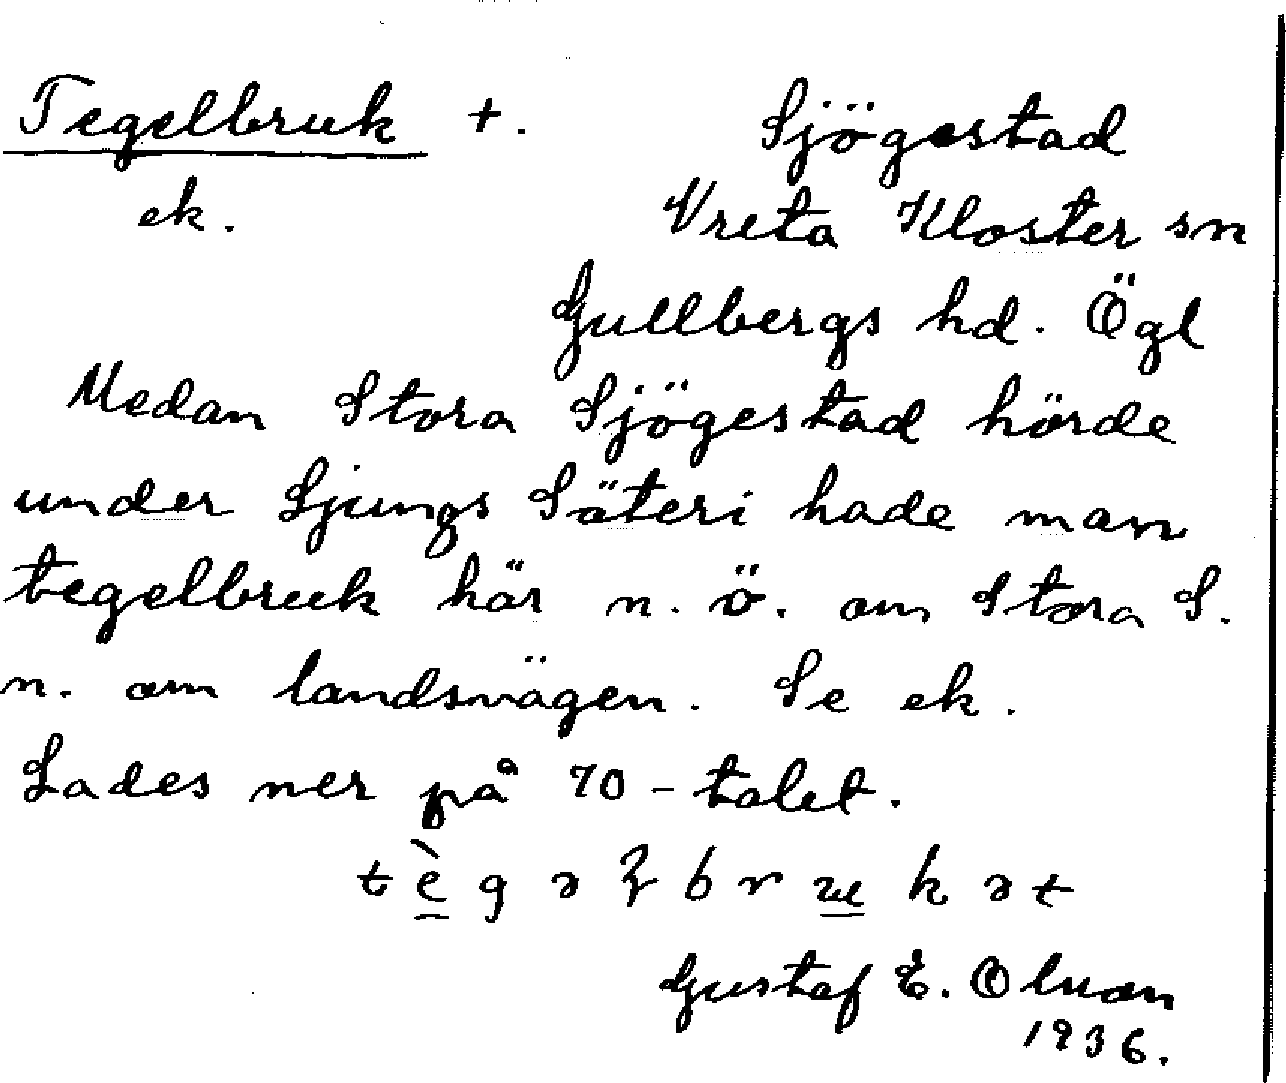 Tegelbruk +. Sjögestad
ek. Vreta Kloster sn
Gullbergs hd. Ögl
Medan Stora Sjögestad hörde
under Ljungs Säteri hade man
tegelbruk här n. ö. om Stora S.
n. om landsvägen. Se ek.
Lades ner på 70-talet.
Gustaf E. Olson
1936.